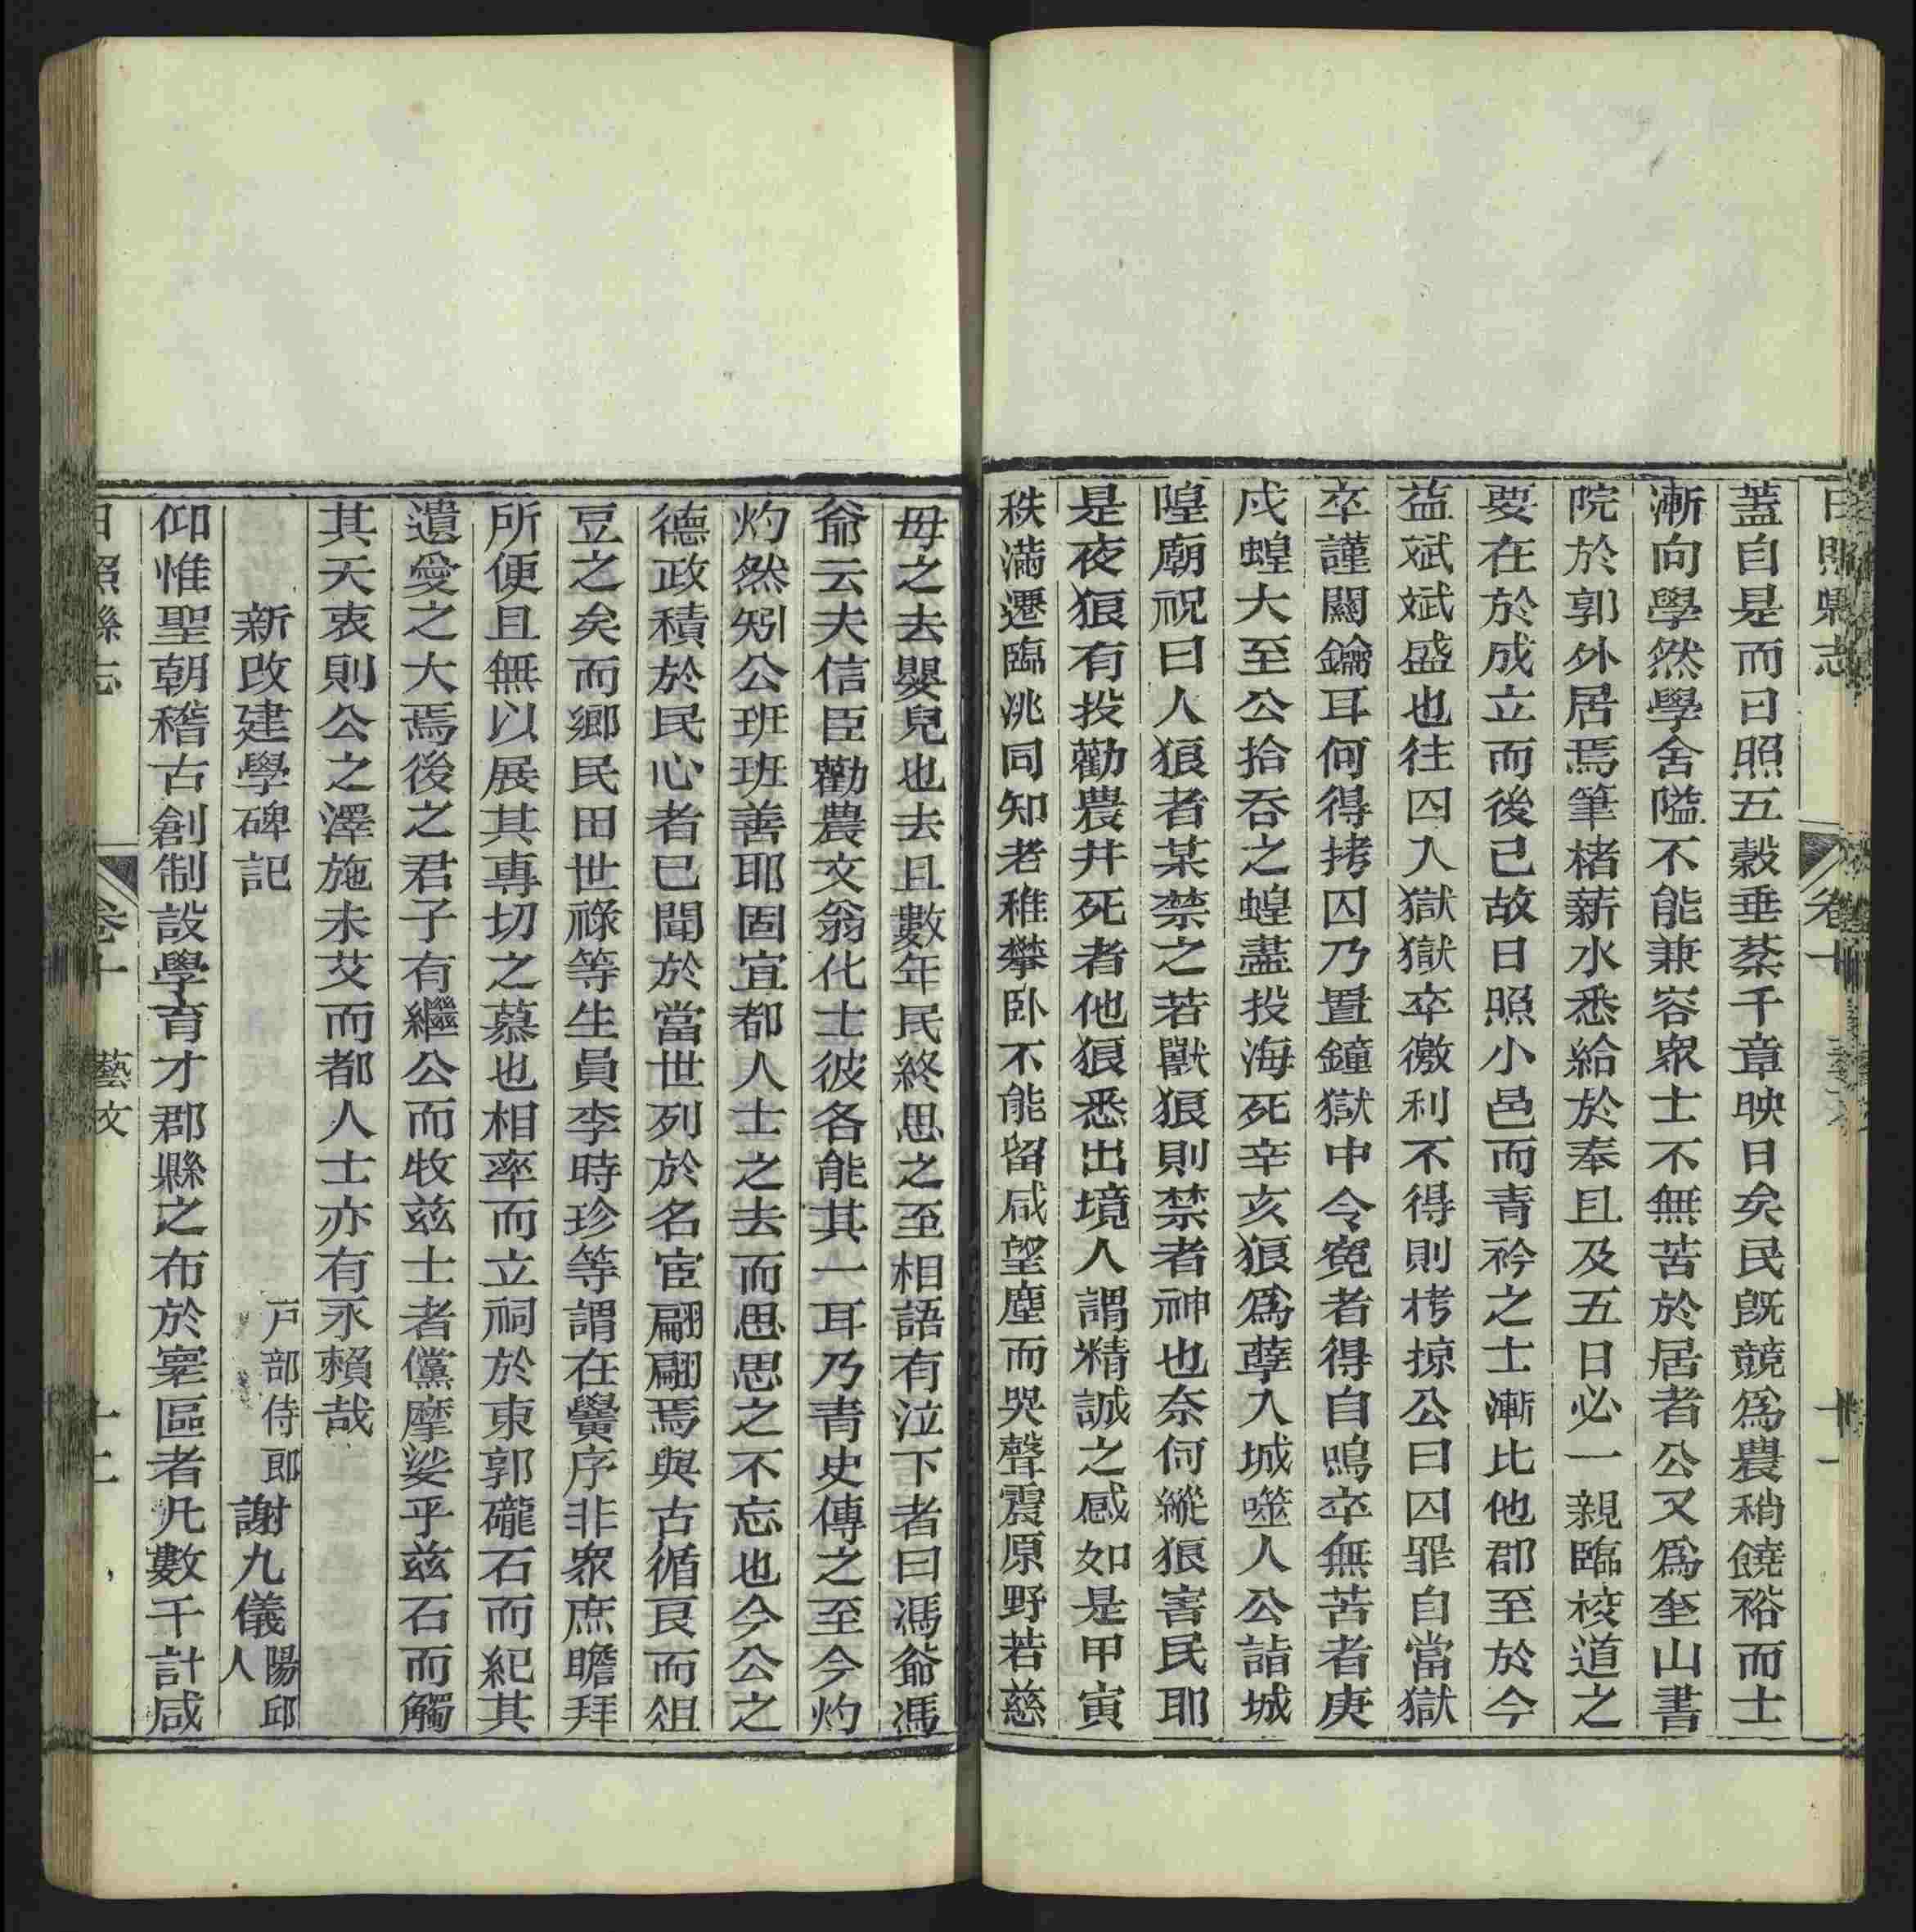 日照縣志
卷十
十一
蓋自是而日照五穀垂棻千章映日矣民既競爲農稍饒裕而士
漸向學然學舍隘不能兼容衆士不無苦於居者公又爲奎山書
院於郭外居焉筆楮薪水悉給於奉且及五日必一親臨校道之
要在於成立而後已故日照小邑而青衿之士漸比他郡至於今
益斌斌盛也往囚入獄獄卒徼利不得則栲掠公曰囚罪自當獄
卒謹闗鑰耳何得拷囚乃置鐘獄中令寃者得自鳴卒無苦者庚
戍蝗大至公拾吞之蝗盡投海死辛亥狼爲孽入城噬人公詣城
隍廟祝曰人狼者某禁之若獸狼則禁者神也奈何縱狼害民耶
是夜狼有投勸農井死者他狼悉出境人謂精誠之感如是甲寅
秩滿遷臨洮同知老稚攀卧不能留咸望塵而哭聲震原野若慈
母之去嬰兒也去且數年民終思之至相語有泣下者曰馮爺馮
爺云夫信臣勸農文翁化士彼各能其一耳乃青史傳之至今灼
灼然矧公班班善耶固宜都人士之去而思思之不忘也今公之
德政積於民心者已聞於當世列於名宦翩翩焉與古循良而俎
豆之矣而鄉民田世祿等生員李時珍等謂在黌序非衆庶瞻拜
所便且無以展其專切之慕也相率而立祠於東郭礲石而紀其
遺愛之大焉後之君子有繼公而牧兹士者儻摩娑乎兹石而觸
其天衷則公之澤施未艾而都人士亦有永賴哉
新改建學碑記
戶部侍郎謝九儀陽邱人
仰惟聖朝稽古創制設學育才郡縣之布於寰區者凡數千計咸
日照縣志
卷十
藝文
十二